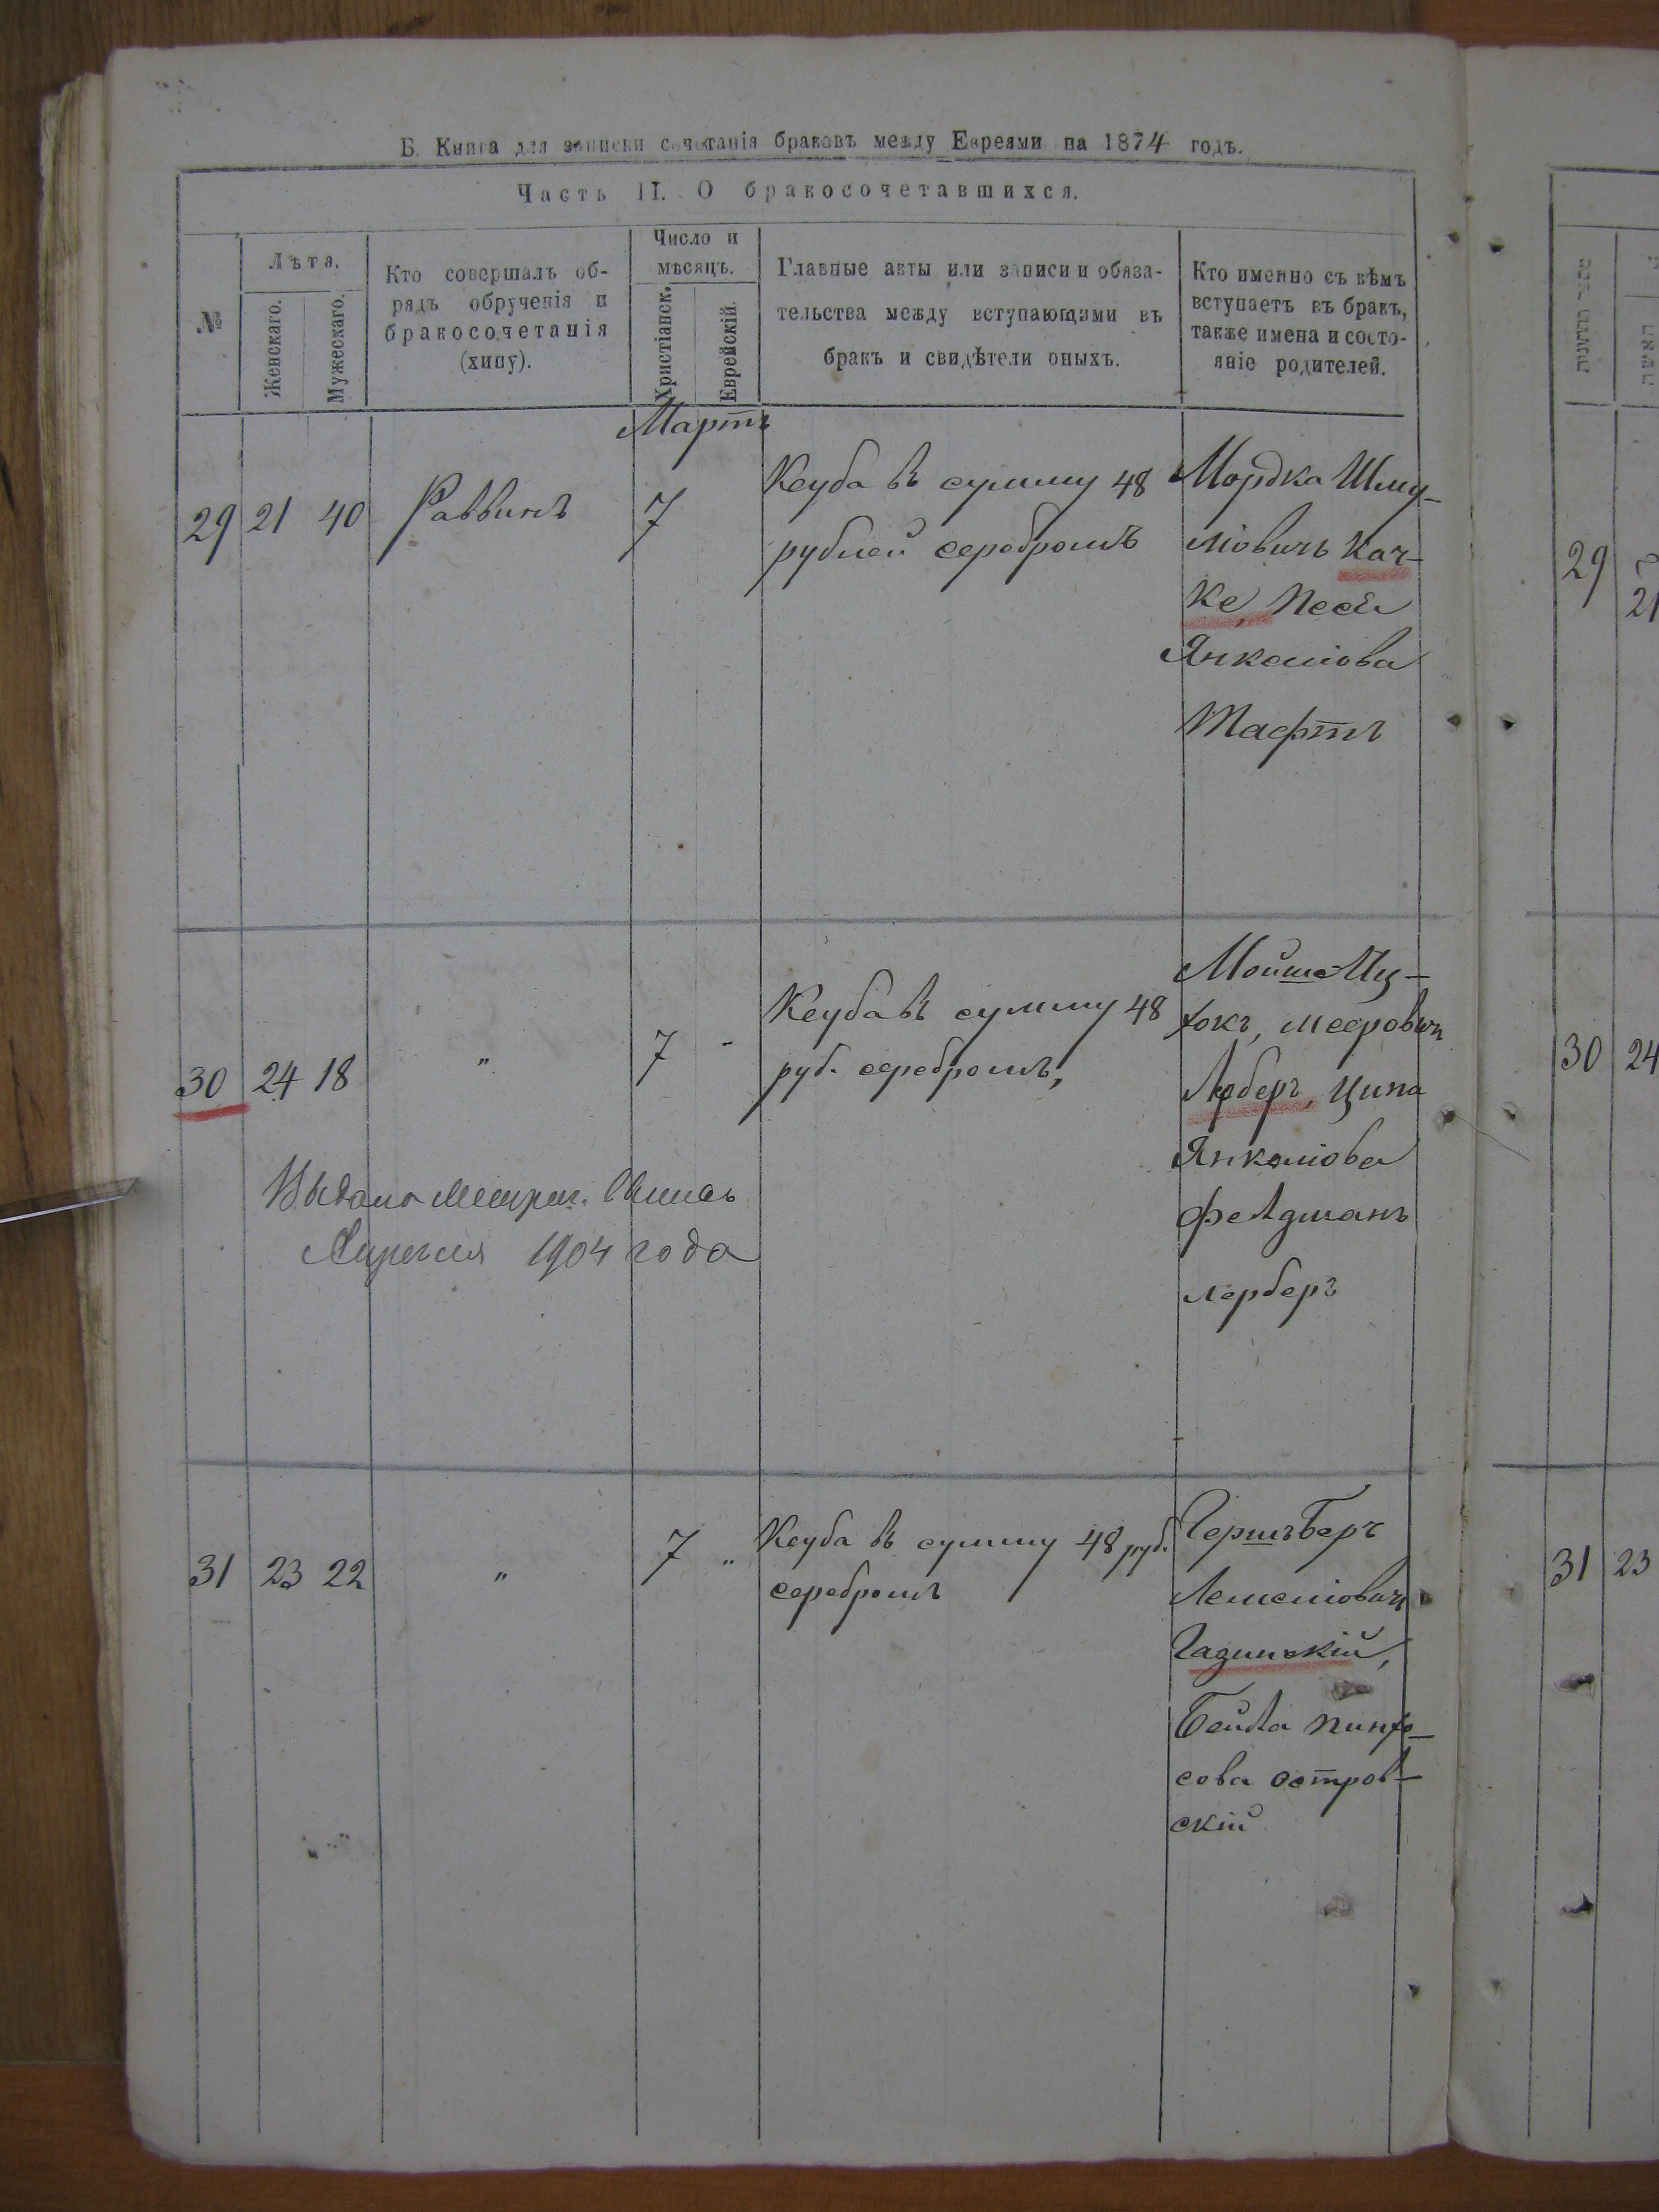 Б. Книга для записки сочетанія браковъ между Евреями на 1874 годъ.
Часть II. О бракосочетавшихся.
№
Лѣта.
Женскаго.
Мужескаго.
Кто совершалъ об-
рядъ обрученія и
бракосочетанія
(хипу).
Число и
мѣсяцъ.
Христіанск.
Еврейскій.
Главные акты или записи и обяза-
тельства между вступающими въ
бракъ и свидѣтели оныхъ.
Кто именно съ кѣмъ
вступаетъ въ бракъ,
также имена и состо-
яніе родителей.
Мартъ
29 21 40 Раввинъ 7
Кеуба въ сумму 48
рублей серебромъ
Мордка Шму-
ліовичъ Кач-
ке, Песя
Янкеліова
Тафтъ
30 24 18 " 7 -
Кеуба въ сумму 48
руб. серебромъ,
Мойше Иц-
хокъ, Мееровичъ
Лерберъ, Ципа
Янкеліова
Фелдманъ
лерберъ
Выдана Метрич. Выпись
1904 года
31 23 22 " 7 "
Кеуба въ сумму 48 руб.
серебромъ
Гершъ Беръ
Лемеліовичъ
Гадинскій,
Бейла Пинхо-
сова Остров-
скій
29
21
30 24
31 23